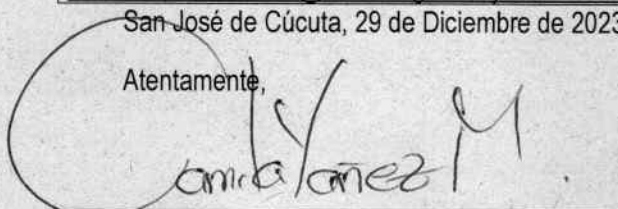 San José de Cúcuta, 29 de Diciembre de 2023
Atentamente,
Camila Yañez M.